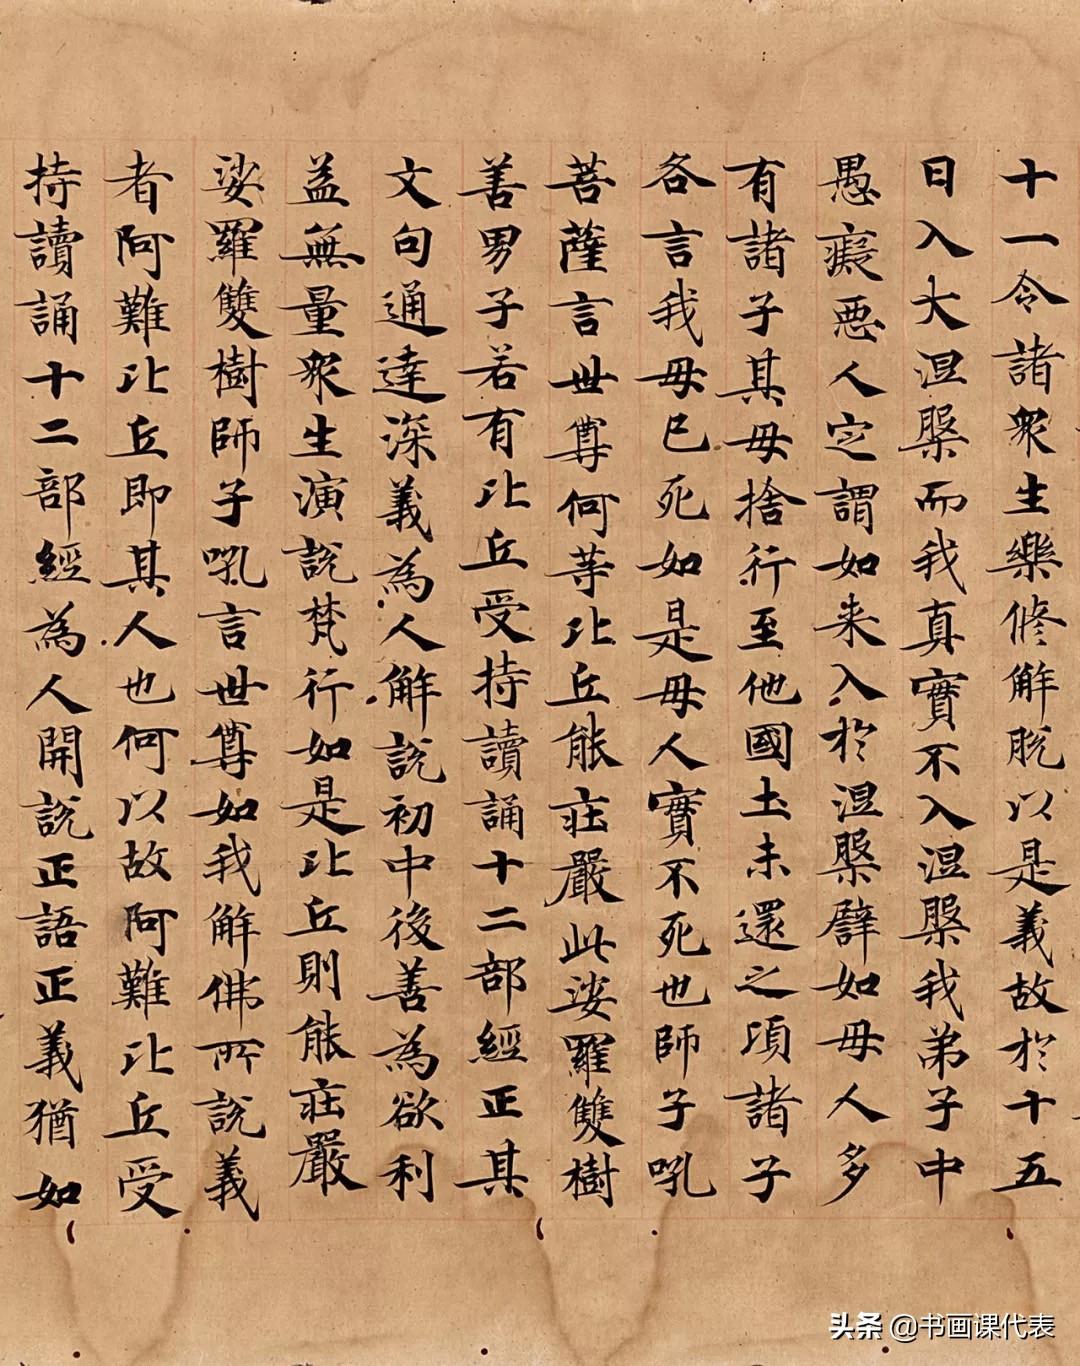 十一令諸衆生樂修解脫以是義故於十五
日入大涅槃而我真實不入涅槃我弟子中
愚癡惡人定謂如来入於涅槃譬如母人多
有諸子其母捨行至他國土未還之頃諸子
各言我母已死如是母人實不死也師子吼
菩薩言世尊何等比丘能莊嚴此娑羅雙樹
善男子若有比丘受持讀誦十二部經正其
文句通達深義為人解說初中後善為欲利
益無量衆生演說梵行如是比丘則能莊嚴
娑羅雙樹師子吼言世尊如我解佛所說義
者阿難比丘即其人也何以故阿難比丘受
持讀誦十二部經為人開說正語正義猶如
头条 @书画课代表